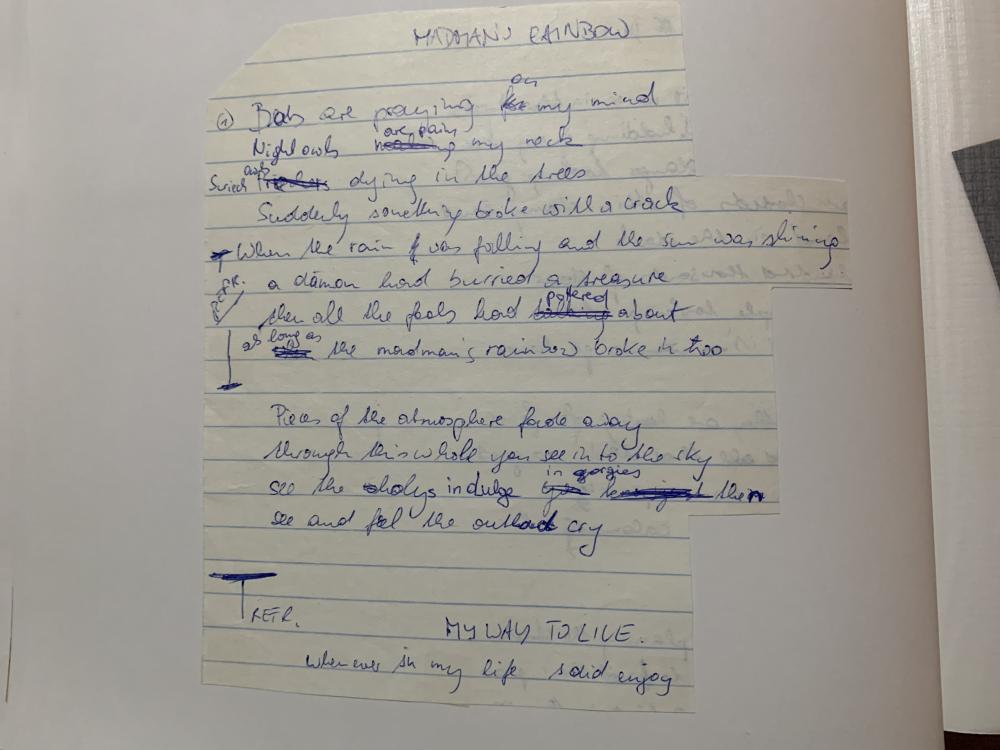 MADMAN'S RAINBOW
(1) Bats are praying on my mind
Night owls are pain my neck
dying in the trees
Suddenly something broke with a crack
When the rain was falling and the sun was shining
REFR. a dämon had burried a treasure
then all the fools had about
as long as the madman's rainbow broke in two
Pieces of the atmosphere fade away
through this whole you see in to the sky
see the holys indulge in orgies then
see and feel the cry
RETR.
MY WAY TO LIVE.
whenever in my life said enjoy